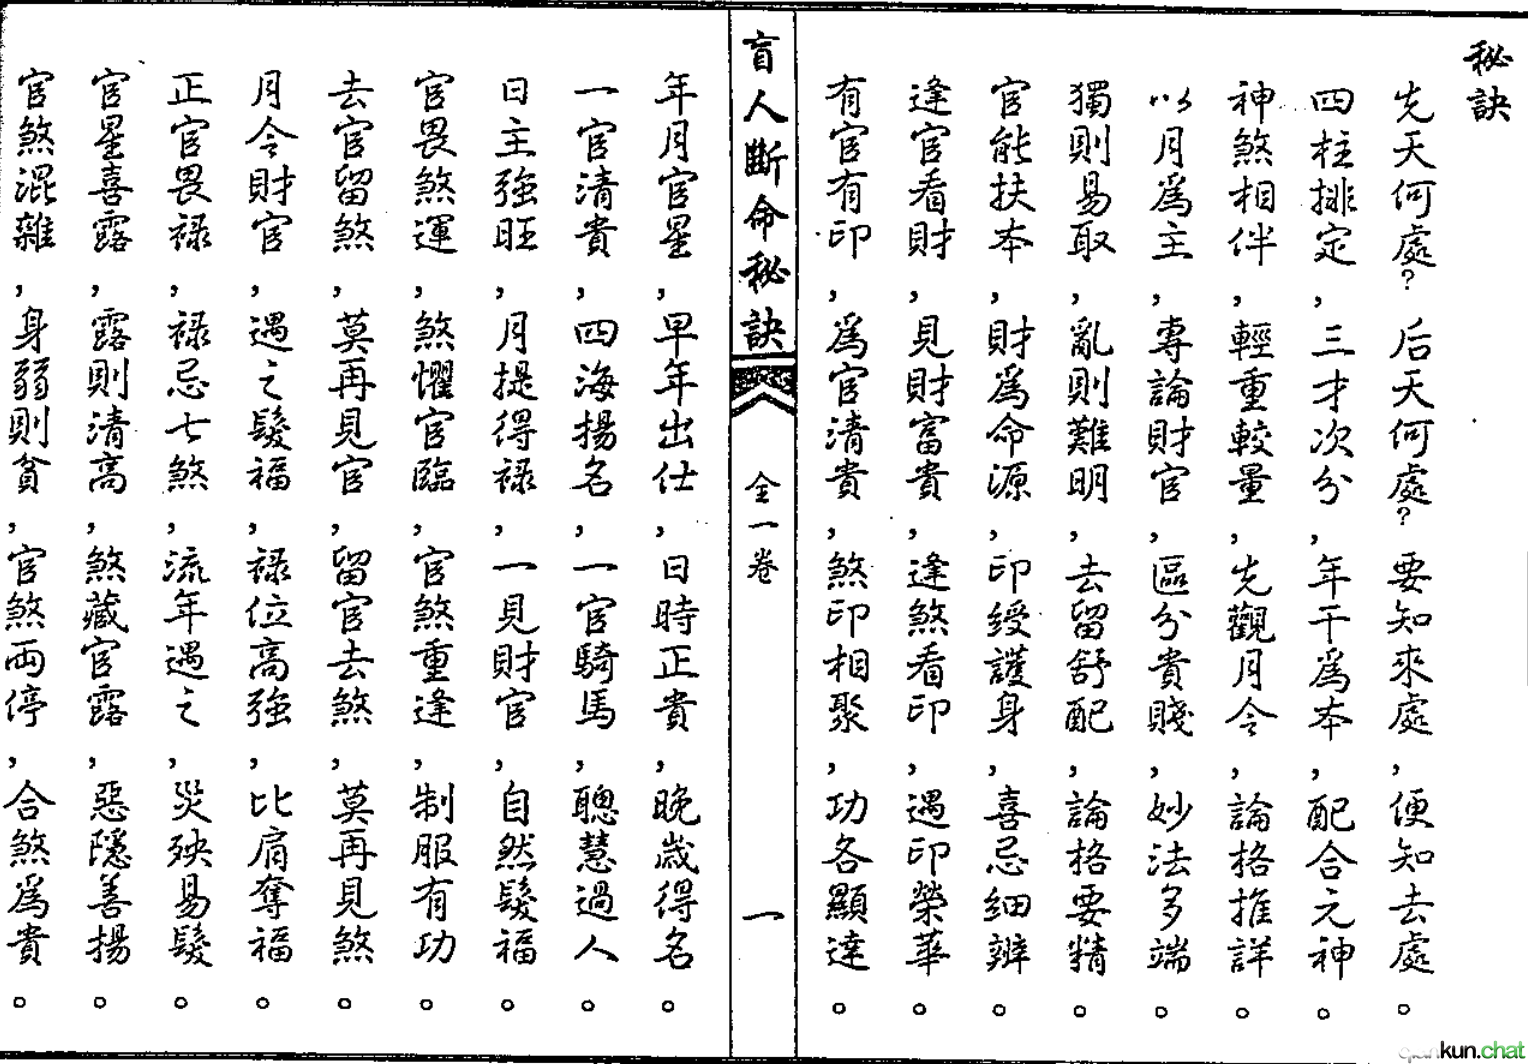 秘訣
先天何處？后天何處？要知來處，便知去處。
四柱排定，三才次分，年干爲本，配合元神。
神煞相伴，輕重較量，先觀月令，論格推詳。
以月爲主，專論財官，區分貴賤，妙法多端。
獨則易取，亂則難明，去留舒配，論格要精。
官能扶本，財爲命源，印綬護身，喜忌細辨。
逢官看財，見財富貴，逢煞看印，遇印榮華。
有官有印，爲官清貴，煞印相聚，功各顯達。
盲人斷命秘訣 全一卷 一
年月官星，早年出仕，日時正貴，晚歲得名。
一官清貴，四海揚名，一官騎馬，聰慧過人。
日主強旺，月提得禄，一見財官，自然髮福。
官畏煞運，煞懼官臨，官煞重逢，制服有功。
去官留煞，莫再見官，留官去煞，莫再見煞。
月令財官，遇之髮福，禄位高強，比肩奪福。
正官畏禄，禄忌七煞，流年遇之，災殃易髮。
官星喜露，露則清高，煞藏官露，惡隱善揚。
官煞混雜，身弱則貧，官煞両停，合煞爲貴。
qiankun.chat